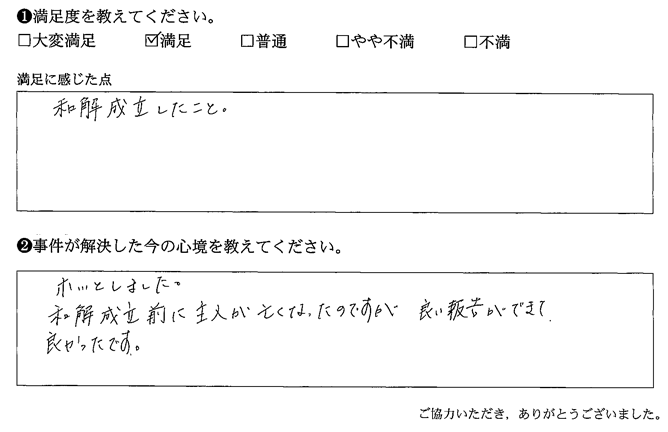 ❶満足度を教えてください。
□大変満足 ☑満足 □普通 □やや不満 □不満
満足に感じた点
和解成立したこと。
❷事件が解決した今の心境を教えてください。
ホッとしました。
和解成立前に主人が亡くなったのですが 良い報告ができて
良かったです。
ご協力いただき、ありがとうございました。